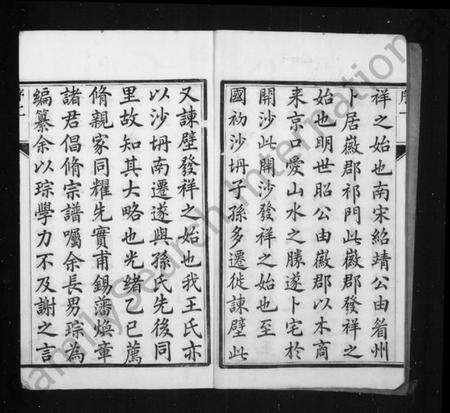 祥之始也南宋紹靖公由睂州
卜居徽郡祁門此徽郡發祥之
始也明世昭公由徽郡以木商
來京口愛山水之勝遂卜宅於
開沙此開沙發祥之始也至
國初沙坍子孫多遷徙諫壁此
又諫壁發祥之始也我王氏亦
以沙坍南遷遂與孫氏先後同
里故知其大略也光緒乙巳蔫
脩親家同耀先實甫錫藩煥章
諸君倡脩宗譜囑余長男琮為
編纂余以琮學力不及謝之言
FamilySearch International